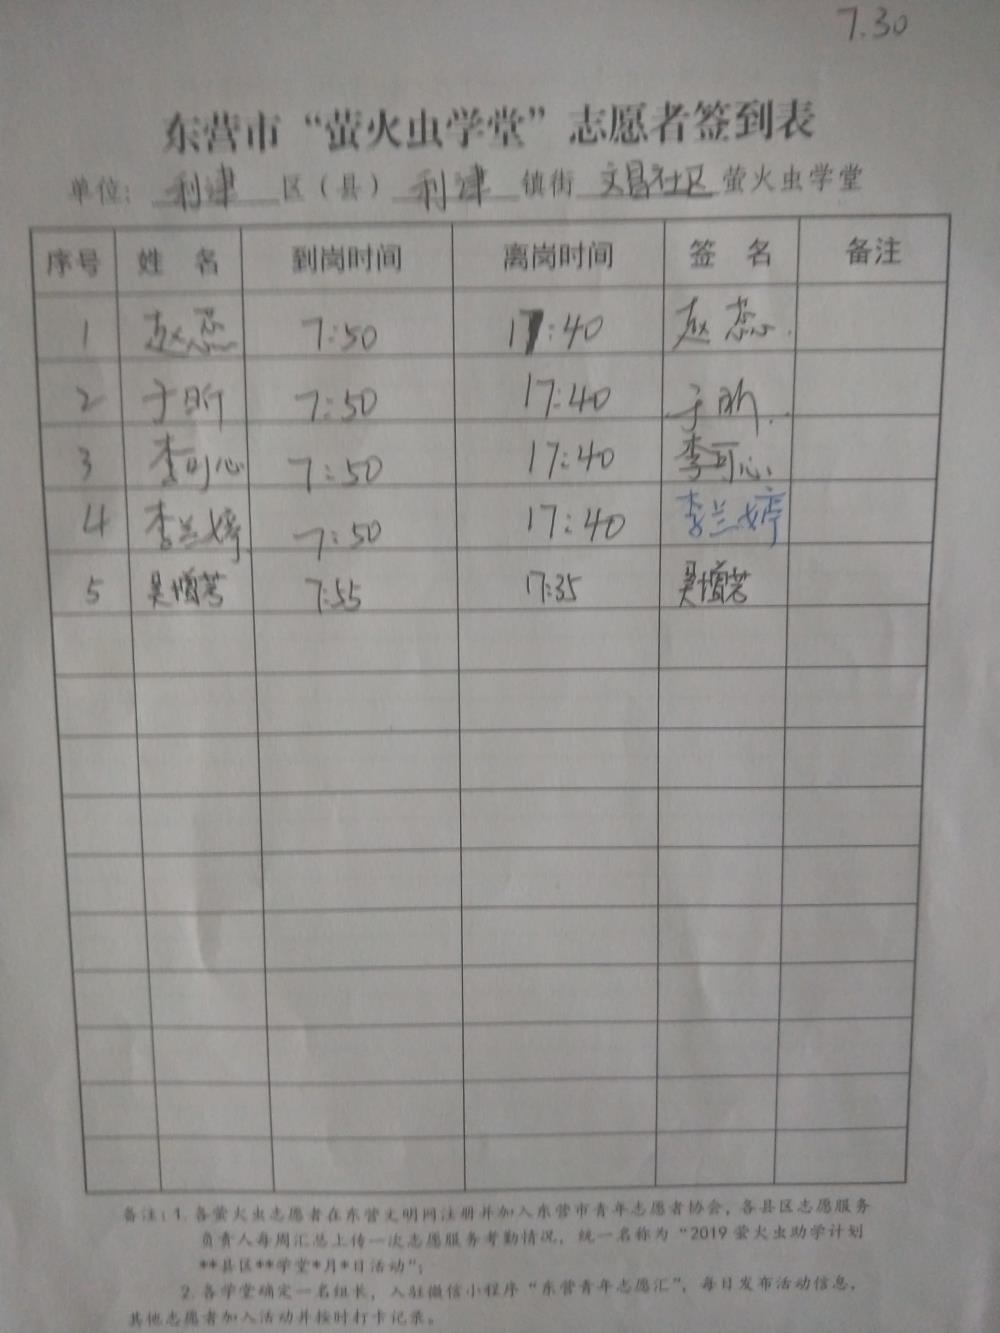 7.30
东营市“萤火虫学堂”志愿者签到表
单位：利津区（县）利津镇街文昌社区萤火虫学堂
序号 姓 名 到岗时间 离岗时间 签 名 备注
1 赵蕊 7:50 17:40 赵蕊
2 于昕 7:50 17:40 于昕
3 李可心 7:50 17:40 李可心
4 李兰婷 7:50 17:40 李兰婷
5 吴芳 7:55 17:35 吴芳
备注：1. 各萤火虫志愿者在东营文明网注册并加入东营市青年志愿者协会，各县区志愿服务
负责人每周汇总上传一次志愿服务考勤情况，统一名称为“2019萤火虫助学计划
**县区**学堂*月*日活动”；
2. 各学堂确定一名组长，入驻微信小程序“东营青年志愿汇”，每日发布活动信息，
其他志愿者加入活动并按时打卡记录。